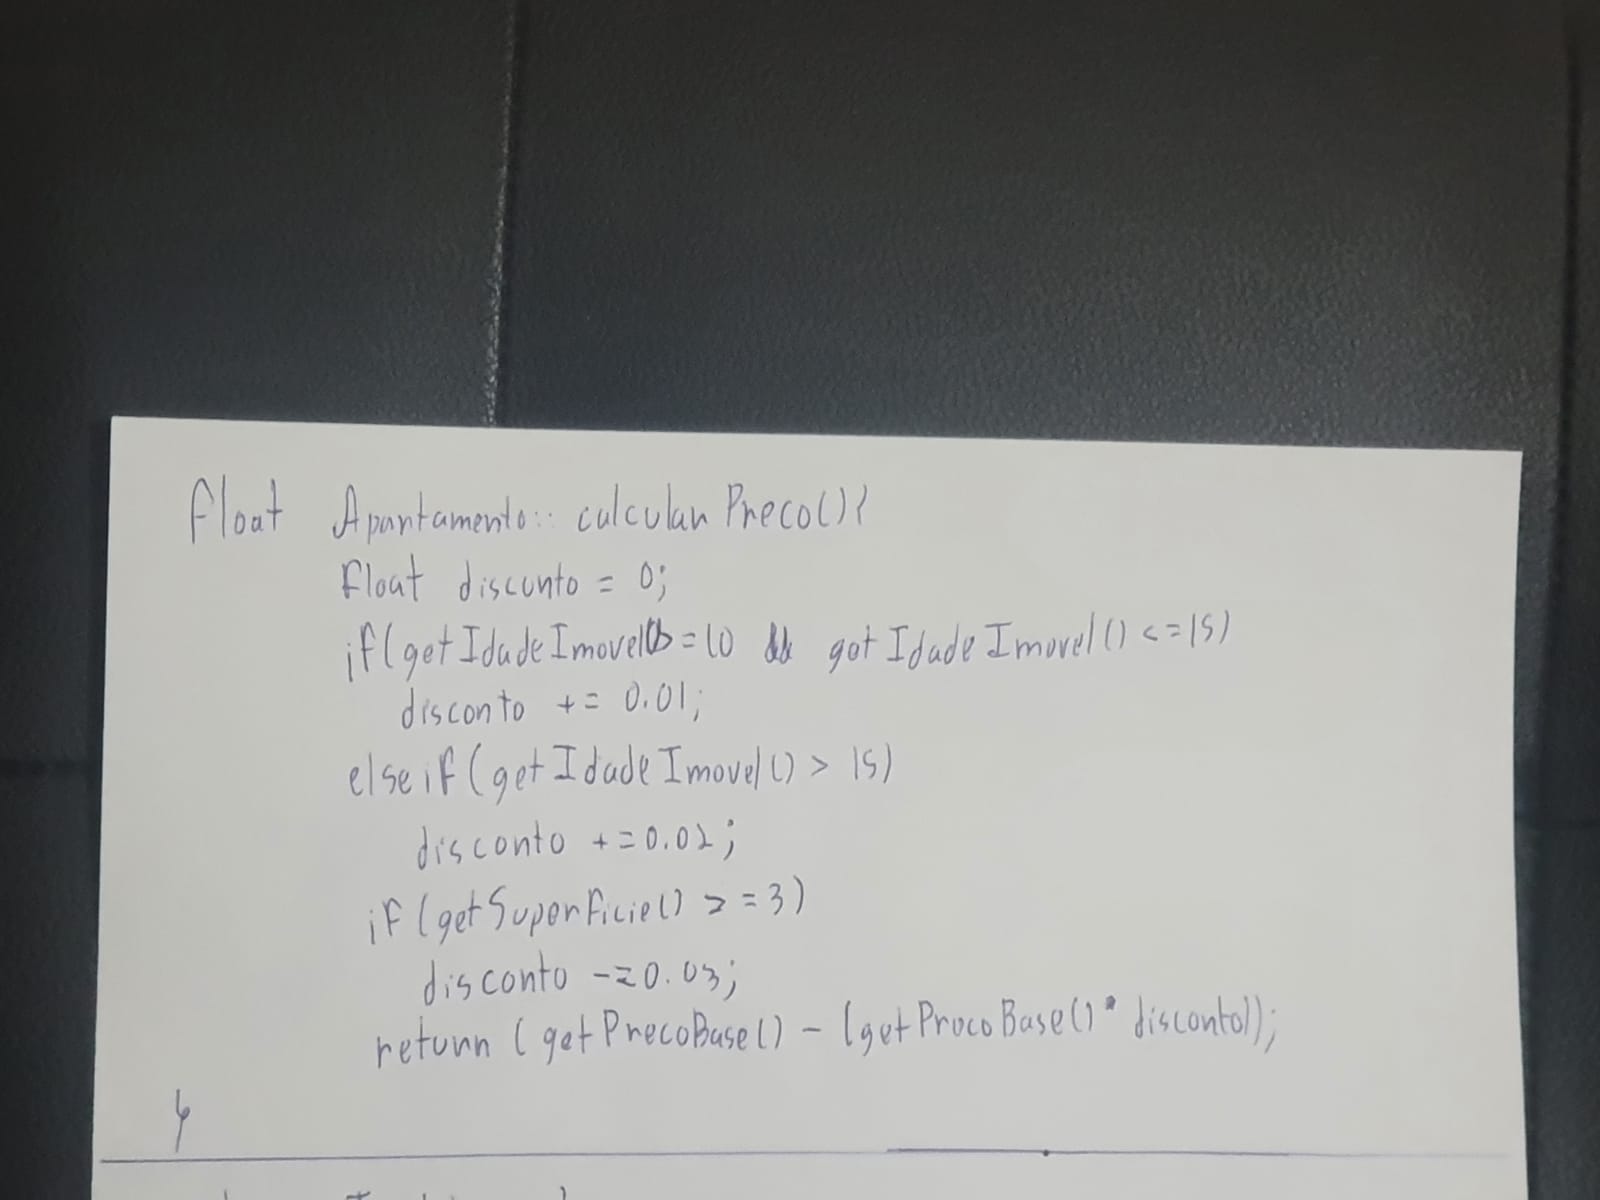 float Apartamento:: calcular Preco(){
float disconto = 0;
if(getIdadeImovel()>=10 && getIdadeImovel() <=15)
disconto += 0.01;
else if (getIdadeImovel() > 15)
disconto +=0.02;
if (getSuperficie() >=3)
disconto -=0.03;
return (getPrecoBase() - (getPrecoBase() * disconto));
}